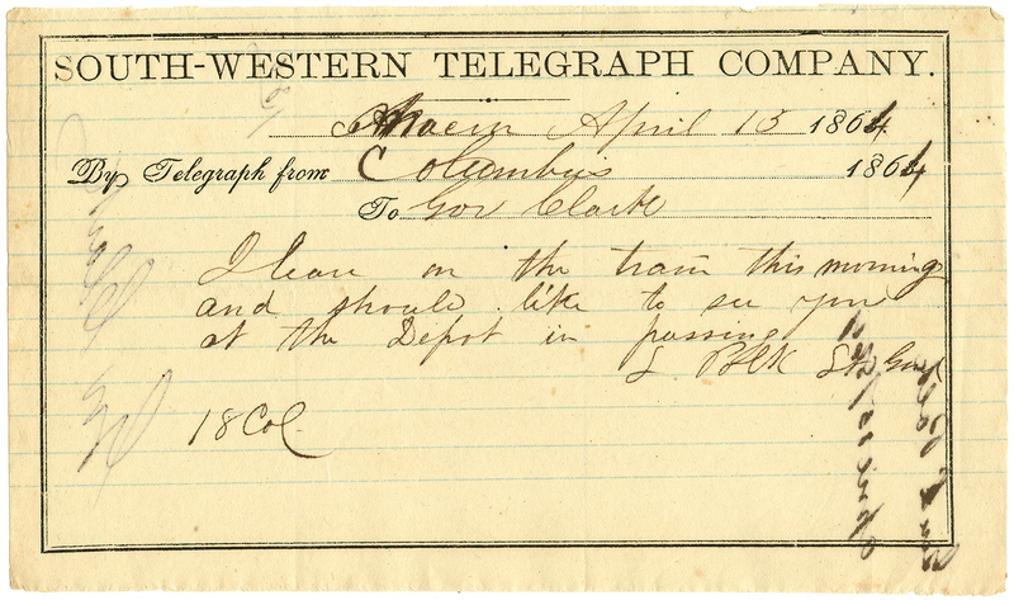 SOUTH-WESTERN TELEGRAPH COMPANY.
Macon April 15 1864
By Telegraph from Columbus 1864
To Gov Clark
I leave on the train this morning
and should like to see you
at the Depot in passing
L. Polk Lt Genl
18 Col